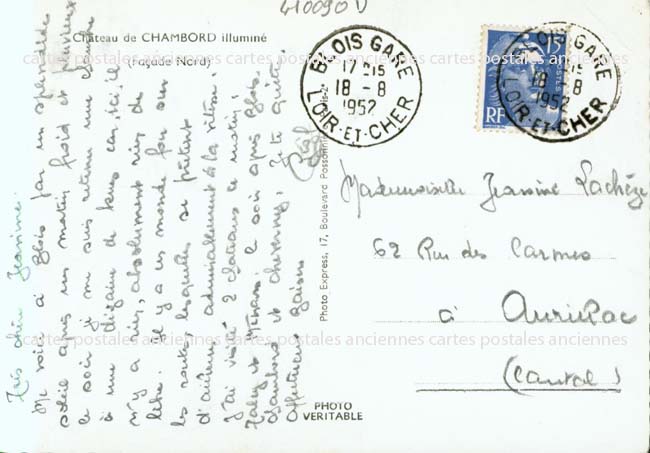 410090 V
Château de CHAMBORD illuminé
(Façade Nord)
BLOIS GARE
17 15
18 - 8
1952
LOIR-ET-CHER
BLOIS GARE
18 - 8
1952
LOIR-ET-CHER
15F
POSTES
RF
Très chère Jeannine.
Me voici à Blois par un splendide
soleil après un matin froid et
le soir je me suis retenu une chambre
à une dizaine de kms car, ici, il
n'y a rien, absolument rien de
libre. Il y a un monde fou sur
les routes, lesquelles se prêtent
d'ailleurs admirablement à la vitesse.
J'ai visité 2 châteaux ce matin,
Talcy et Ménars. Le soir après Blois,
Chambord et Cheverny. Je te quitte.
Affectueux baisers
Photo Express, 17, Boulevard
PHOTO
VERITABLE
Mademoiselle Jeannine Lachèze
62 Rue des Carmes
à Aurillac
(Cantal)
cartes postales anciennes cartes postales anciennes
cartes postales anciennes cartes postales anciennes
cartes postales anciennes cartes postales anciennes
cartes postales anciennes cartes postales anciennes
cartes postales anciennes cartes postales anciennes